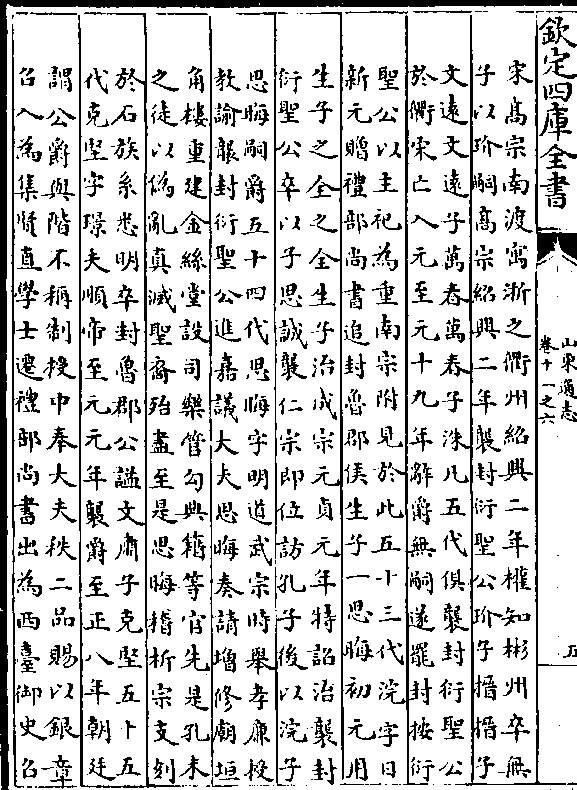 欽定四庫全書
山東通志
卷十一之六
五
宋高宗南渡寓浙之衢州紹興二年權知彬州卒無
子以玠嗣高宗紹興二年襲封衍聖公玠子搢搢子
文遠文遠子萬春萬春子洙凡五代俱襲封衍聖公
於衢宋亡入元至元十九年辭爵無嗣遂罷封按衍
聖公以主祀為重南宗附見於此五十三代浣字日
新元贈禮部尚書追封魯郡侯生子一思晦初元用
生子之全之全生子治成宗元貞元年特詔治襲封
衍聖公卒以子思誠襲仁宗即位訪孔子後以浣子
思晦嗣爵五十四代思晦字明道武宗時舉孝廉授
教諭襲封衍聖公進嘉議大夫思晦奏請增修廟垣
角樓重建金絲堂設司樂管勾典籍等官先是孔末
之徒以偽亂真滅聖裔殆盡至是思晦稽析宗支刻
於石族系悉明卒封魯郡公諡文肅子克堅五十五
代克堅字璟夫順帝至元元年襲爵至正八年朝廷
謂公爵與階不稱制授中奉大夫秩二品賜以銀章
召入為集賢直學士遷禮部尚書出為西臺御史召